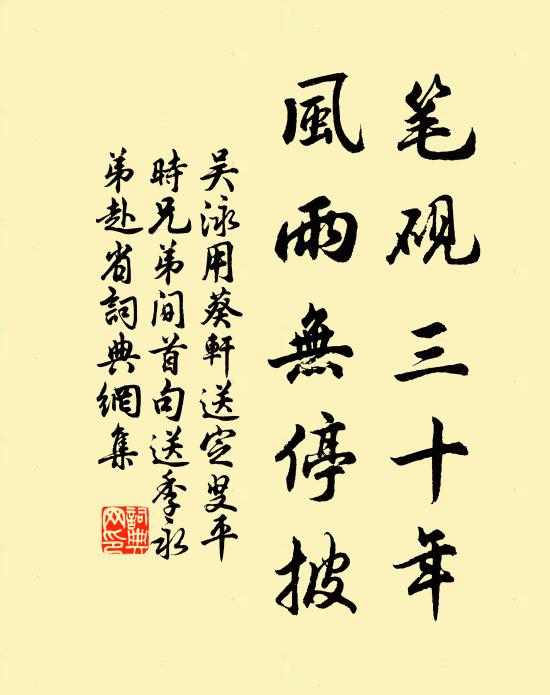 笔砚三十年
風雨無停披
吴泳用葵軒送定叟平
時兄弟间首句送季永
弟赴省詞典網集
詞典网印